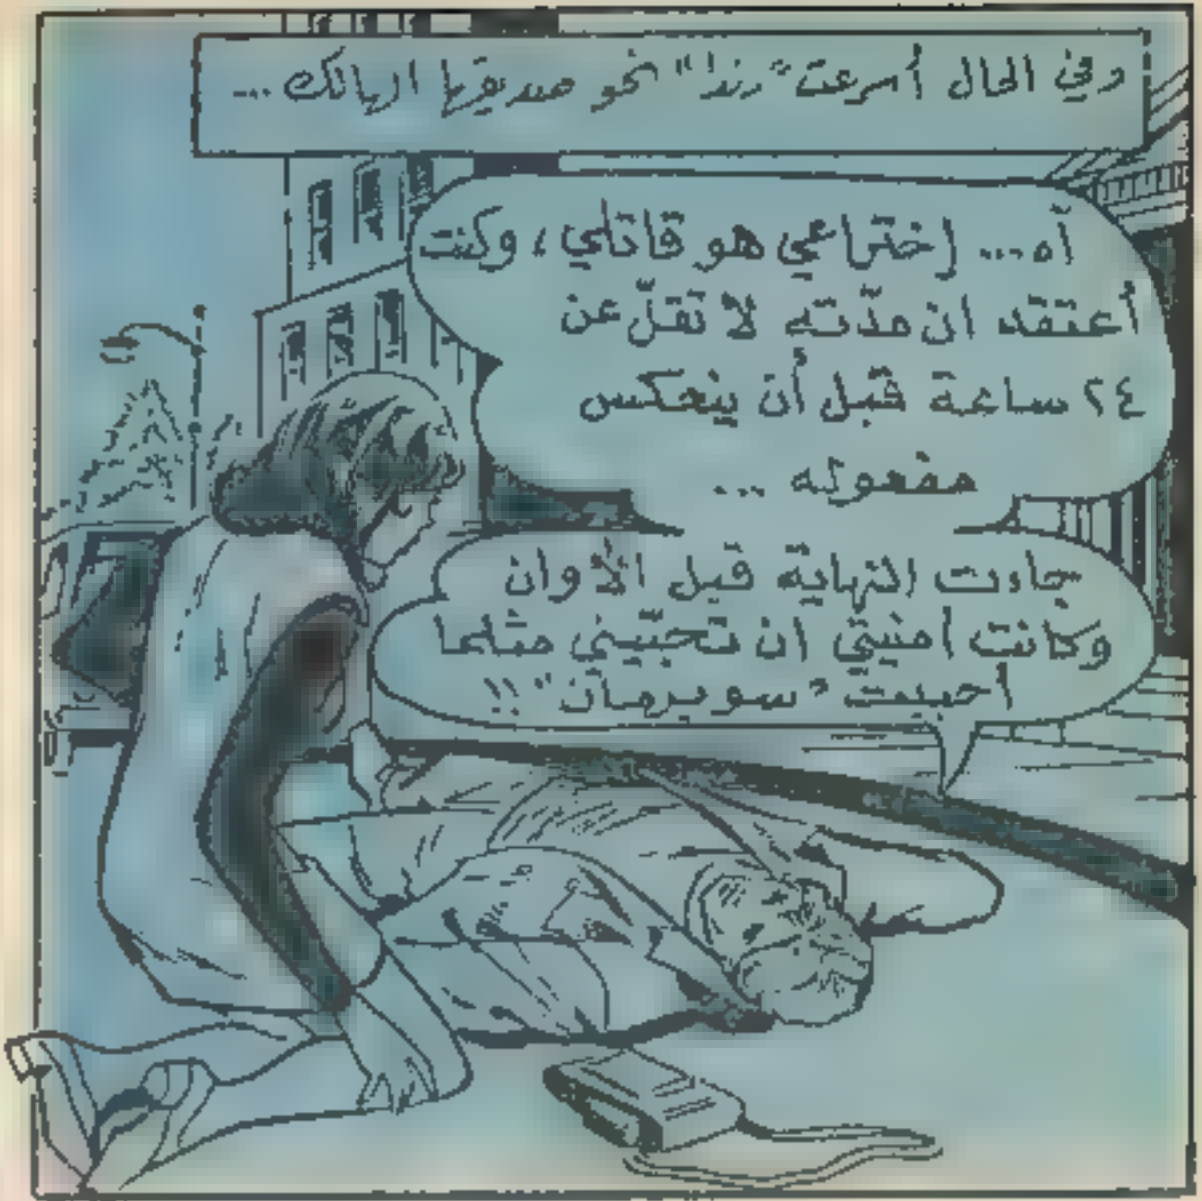 وفي الحال أسرعت "رندا" نحو صديقها الهالك ...
آه ... إختراعي هو قاتلي ، وكنت
أعتقد ان مدّته لا تقلّ عن
٢٤ ساعة قبل أن ينعكس
مفعوله ...
جاءت النهاية قبل الأوان
وكانت أمنيتي ان تحبّيني مثلما
أحببت "سوبرمان" !!